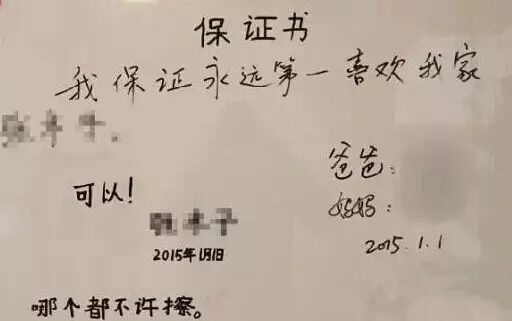 保证书
我保证永远第一喜欢我家
爸爸：
可以！
妈妈：
2015.1.1
2015年1月1日
哪个都不许擦。